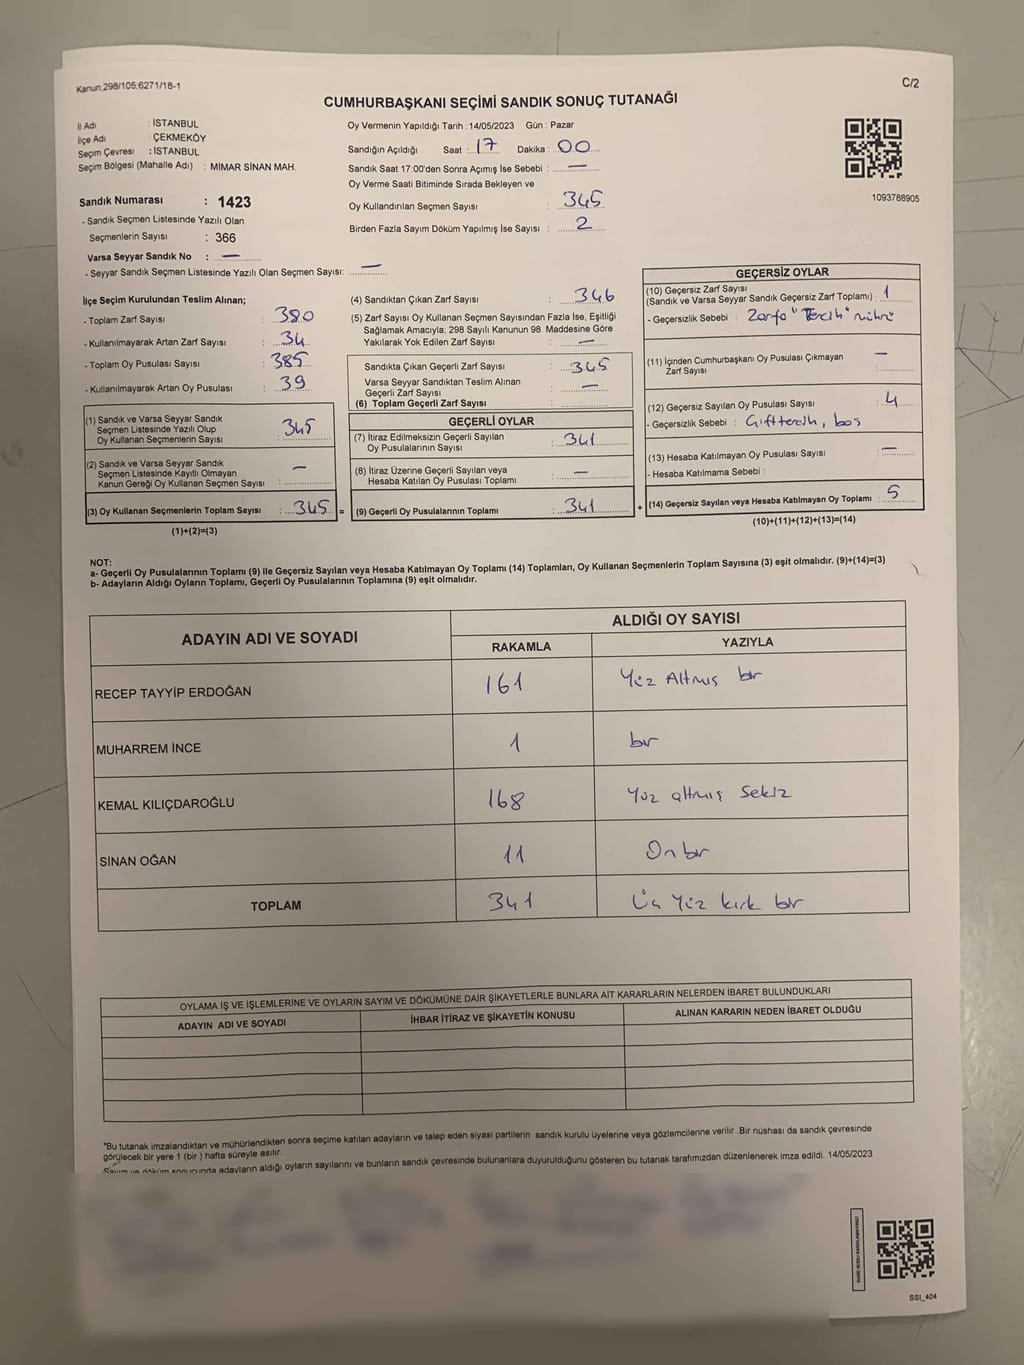 Kanun:298/105;6271/18-1
C/2
CUMHURBAŞKANI SEÇİMİ SANDIK SONUÇ TUTANAĞI
İl Adı : İSTANBUL
İlçe Adı : ÇEKMEKÖY
Seçim Çevresi : İSTANBUL
Seçim Bölgesi (Mahalle Adı) : MİMAR SİNAN MAH.
Sandık Numarası : 1423
- Sandık Seçmen Listesinde Yazılı Olan
Seçmenlerin Sayısı : 366
Varsa Seyyar Sandık No : —
- Seyyar Sandık Seçmen Listesinde Yazılı Olan Seçmen Sayısı: —
Oy Vermenin Yapıldığı Tarih : 14/05/2023 Gün : Pazar
Sandığın Açıldığı Saat : 17 Dakika : 00
Sandık Saat 17:00'den Sonra Açımış İse Sebebi : —
Oy Verme Saati Bitiminde Sırada Bekleyen ve
Oy Kullandırılan Seçmen Sayısı : 345
Birden Fazla Sayım Döküm Yapılmış İse Sayısı : 2
1093788905
İlçe Seçim Kurulundan Teslim Alınan;
- Toplam Zarf Sayısı : 380
- Kullanılmayarak Artan Zarf Sayısı : 34
- Toplam Oy Pusulası Sayısı : 385
- Kullanılmayarak Artan Oy Pusulası : 39
(1) Sandık ve Varsa Seyyar Sandık
Seçmen Listesinde Yazılı Olup
Oy Kullanan Seçmenlerin Sayısı : 345
(2) Sandık ve Varsa Seyyar Sandık
Seçmen Listesinde Kayıtlı Olmayan
Kanun Gereği Oy Kullanan Seçmen Sayısı : —
(3) Oy Kullanan Seçmenlerin Toplam Sayısı : 345 =
(1)+(2)=(3)
(4) Sandıktan Çıkan Zarf Sayısı : 346
(5) Zarf Sayısı Oy Kullanan Seçmen Sayısından Fazla İse, Eşitliği
Sağlamak Amacıyla; 298 Sayılı Kanunun 98. Maddesine Göre
Yakılarak Yok Edilen Zarf Sayısı : —
Sandıkta Çıkan Geçerli Zarf Sayısı : 345
Varsa Seyyar Sandıktan Teslim Alınan
Geçerli Zarf Sayısı : —
(6) Toplam Geçerli Zarf Sayısı :
GEÇERLİ OYLAR
(7) İtiraz Edilmeksizin Geçerli Sayılan
Oy Pusulasının Sayısı : 341
(8) İtiraz Üzerine Geçerli Sayılan veya
Hesaba Katılan Oy Pusulası Toplamı : —
(9) Geçerli Oy Pusulalarının Toplamı : 341 +
GEÇERSİZ OYLAR
(10) Geçersiz Zarf Sayısı
(Sandık ve Varsa Seyyar Sandık Geçersiz Zarf Toplamı) : 1
- Geçersizlik Sebebi : Zarfa "Tercih" mührü
(11) İçinden Cumhurbaşkanı Oy Pusulası Çıkmayan
Zarf Sayısı : —
(12) Geçersiz Sayılan Oy Pusulası Sayısı : 4
- Geçersizlik Sebebi : Çift tercih, boş
(13) Hesaba Katılmayan Oy Pusulası Sayısı : —
- Hesaba Katılmama Sebebi :
(14) Geçersiz Sayılan veya Hesaba Katılmayan Oy Toplamı : 5
(10)+(11)+(12)+(13)=(14)
NOT:
a- Geçerli Oy Pusulalarının Toplamı (9) ile Geçersiz Sayılan veya Hesaba Katılmayan Oy Toplamı (14) Toplamları, Oy Kullanan Seçmenlerin Toplam Sayısına (3) eşit olmalıdır. (9)+(14)=(3)
b- Adayların Aldığı Oyların Toplamı, Geçerli Oy Pusulalarının Toplamına (9) eşit olmalıdır.
ADAYIN ADI VE SOYADI
ALDIĞI OY SAYISI
RAKAMLA YAZIYLA
RECEP TAYYİP ERDOĞAN 161 Yüz Altmış bir
MUHARREM İNCE 1 bir
KEMAL KILIÇDAROĞLU 168 Yüz altmış sekiz
SİNAN OĞAN 11 On bir
TOPLAM 341 Üç Yüz kırk bir
OYLAMA İŞ VE İŞLEMLERİNE VE OYLARIN SAYIM VE DÖKÜMÜNE DAİR ŞİKAYETLERLE BUNLARA AİT KARARLARIN NELERDEN İBARET BULUNDUKLARI
ADAYIN ADI VE SOYADI İHBAR İTİRAZ VE ŞİKAYETİN KONUSU ALINAN KARARIN NEDEN İBARET OLDUĞU
*Bu tutanak imzalandıktan ve mühürlendikten sonra seçime katılan adayların ve talep eden siyasi partilerin sandık kurulu üyelerine veya gözlemcilerine verilir. Bir nüshası da sandık çevresinde
görülecek bir yere 1 (bir ) hafta süreyle asılır.
Sayım ve döküm sonucunda adayların aldığı oyların sayılarını ve bunların sandık çevresinde bulunanlara duyurulduğunu gösteren bu tutanak tarafımızdan düzenlenerek imza edildi. 14/05/2023
SSI_404